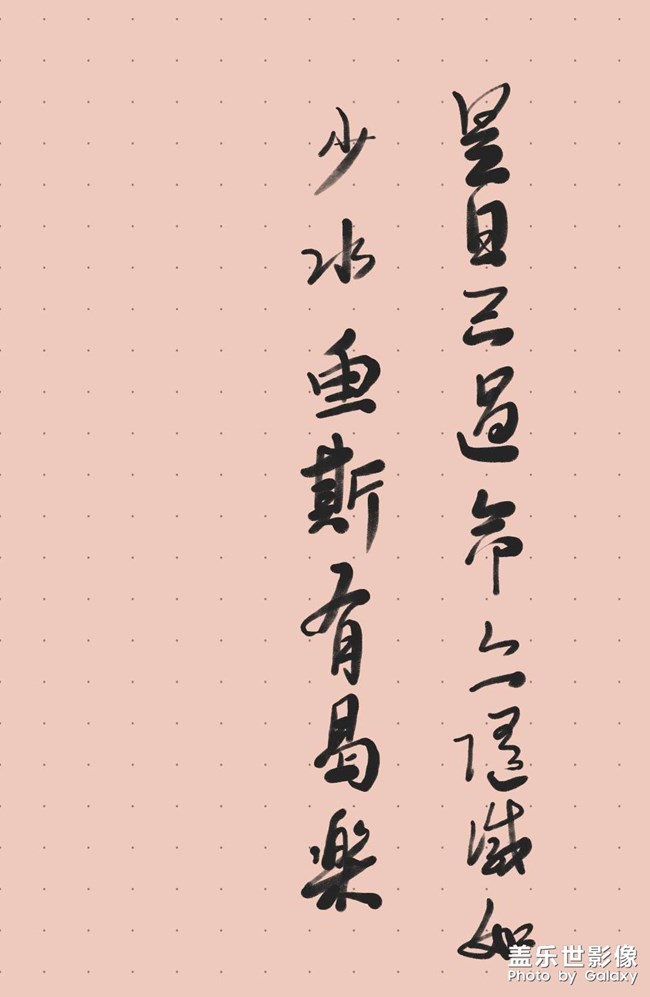 是日已過命亦隨減如
少水魚斯有曷樂
盖乐世影像
Photo by Galaxy